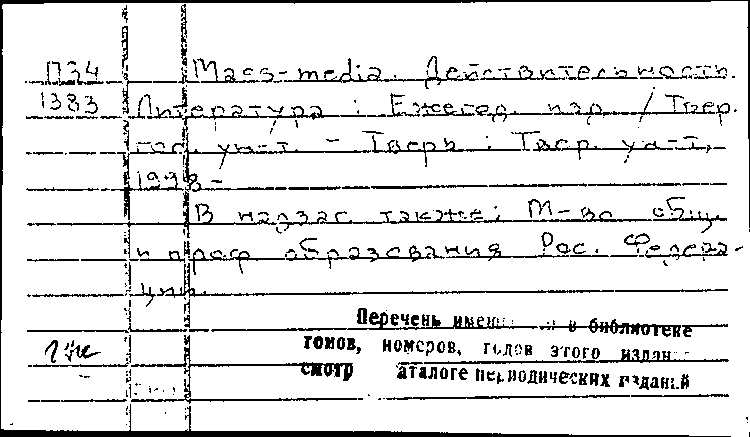 П34 Mass-media. Действительность.
1383 Литература : Ежегод. изд. / Твер.
гос. ун-т. - Тверь : Твер. ун-т,
1998 -
В надзаг. также: М-во общ.
и проф. образования Рос. Федера-
ции.
Перечень в библиотеке
томов, номеров, годов этого издан
смотр аталоге периодических изданий